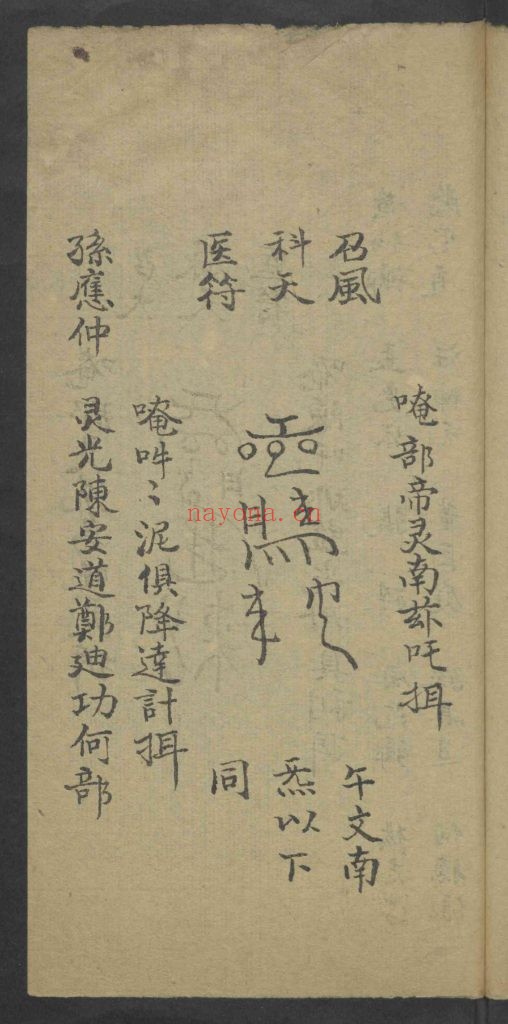 唵部帝灵南玆吒揖
召風
科天
医符
午文南
炁以下
同
唵吽〻泥俱降達計揖
孫應仲
灵光陳安道鄭迪功何部
nayona.cn